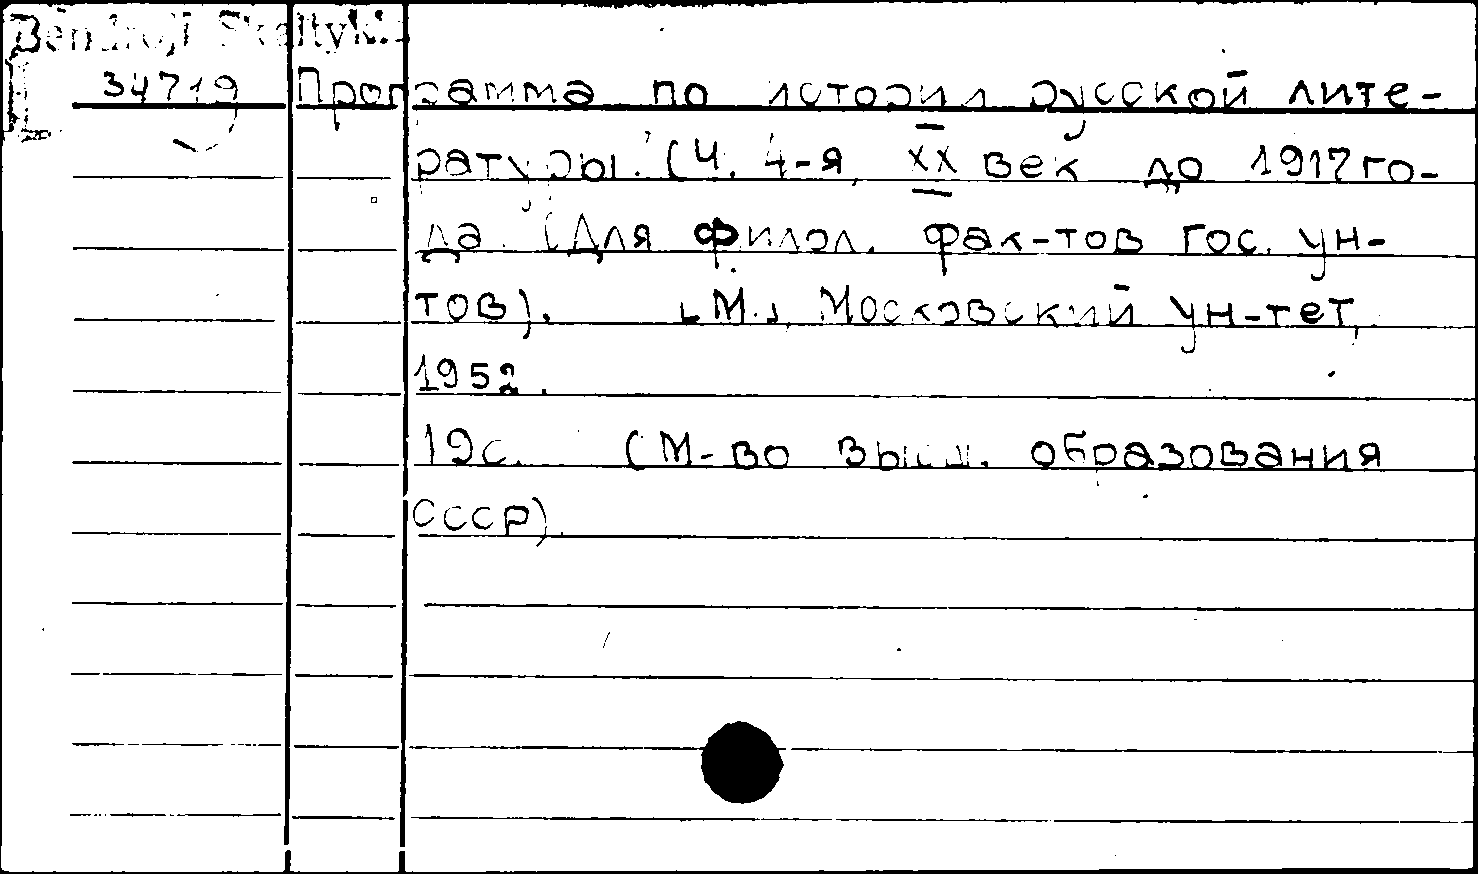 Bendroji Skaitykla
34719 Программа по истории русской лите-
ратуры. (Ч. 4-я, XX век до 1917 го-
да. (Для филол. фак-тов гос. ун-
тов). [М.], Московский ун-тет,
1952.
19с. (М-во высш. образования
СССР).